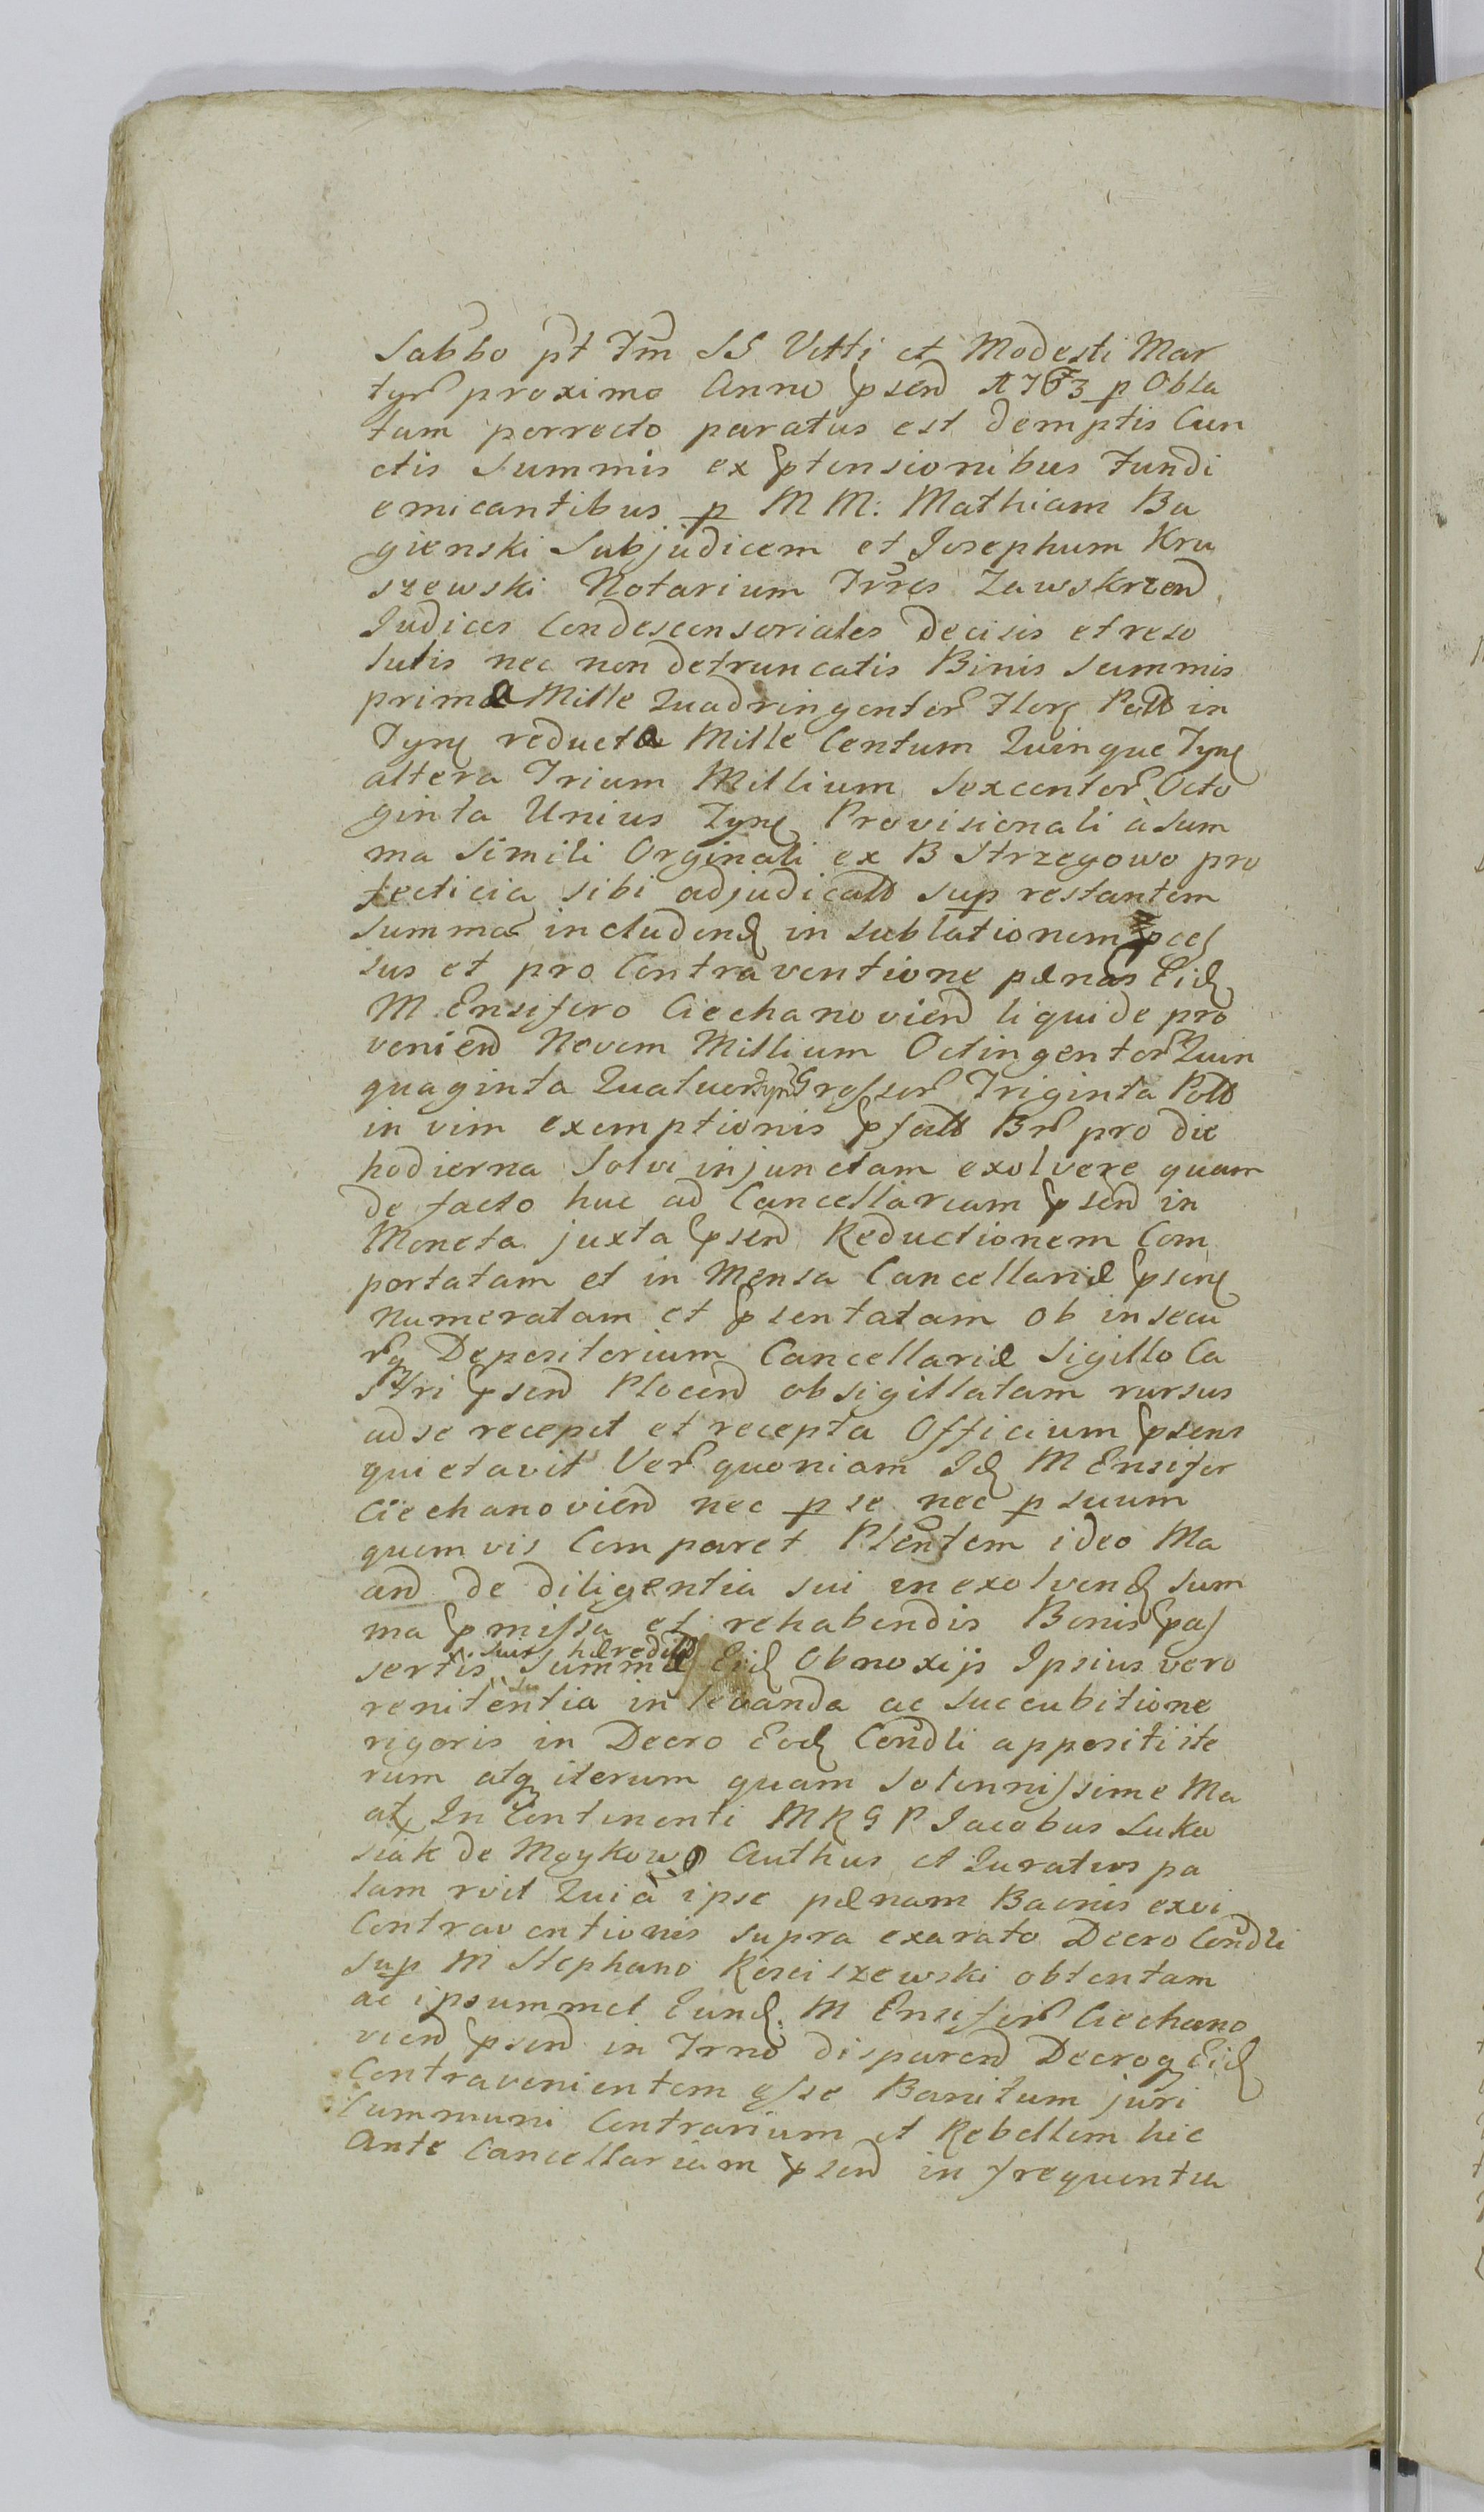 Sabbo pt Ftm SS Vitti et Modesti Mar
tyr proximo Anno psen 1763 p Obla
tam porrecto paratus est demptis Cun
ctis Summis ex ptensionibus Fundi
emicantibus p M M: Mathiam Ba
gienski Subjudicem et Josephum Kru
szewski Notarium Trres Zawskrzen
Judices Condescensoriales decisis et reso
lutis nec non detruncatis Binis Summis
prima Mille Quadringentor Flor Poll in
Tynf reducta Mille Centum Quinque Tynf
altera Trium Millium Sexcentor Octo
ginta Unius Tynf Provisionali à Sum
ma Simili Orginali ex B Strzegowo pro
fecticia sibi adjudicall sup restantem
summa includend in sublationem pces
sus et pro Contraventione pænas Eid
M Ensifero Ciechanovien liquide pro
venien Novem Millium Octingentor Quin
quaginta Quatuor Tynf Grossor Triginta Poll
in vim exemptionis pfall Br pro die
hodierna Solvi injunctam exolvere quam
de facto huc ad Cancellariam psen in
Moneta juxta psen Reductionem Com
portatam et in Mensa Cancellariæ psen
numeratam et psentatam ob insecu
rq Depositorium Cancellariæ Sigillo Ca
stri psen Plocen obsigillatam rursus
ad se recepit et recepta Officium psens
quietavit Ver quoniam Id M Ensifer
Ciechanovien nec p se nec p suum
quemvis Comparet Plentem ideo Ma
and de diligentia sui in exolvend Sum
ma pmissa et rehabendis Bonis pas
sertis suis hæredill Summæ Eid Obnoxijs Ipsius vero
renitentia in levanda ac succubitione
rigoris in Decro Eod Condli appositi ite
rum atq iterum quam solennissime Ma
at In Continenti M R G P Jacobus Luka
siak de Maykowo Authus et Juratus pa
lam rvit Quia ipse pænam Bacnis exvi
Contraventionis supra exarato Decro Condli
sup M Stephano Kosciszewski obtentam
ac ipsummet Eund M Ensifer Ciechano
vien psen in Trno disparen Decroq Eid
Contravenientem esse Banitum juri
Cummuni Contrarium et Rebellem hic
Ante Cancellariam psen in frequentia